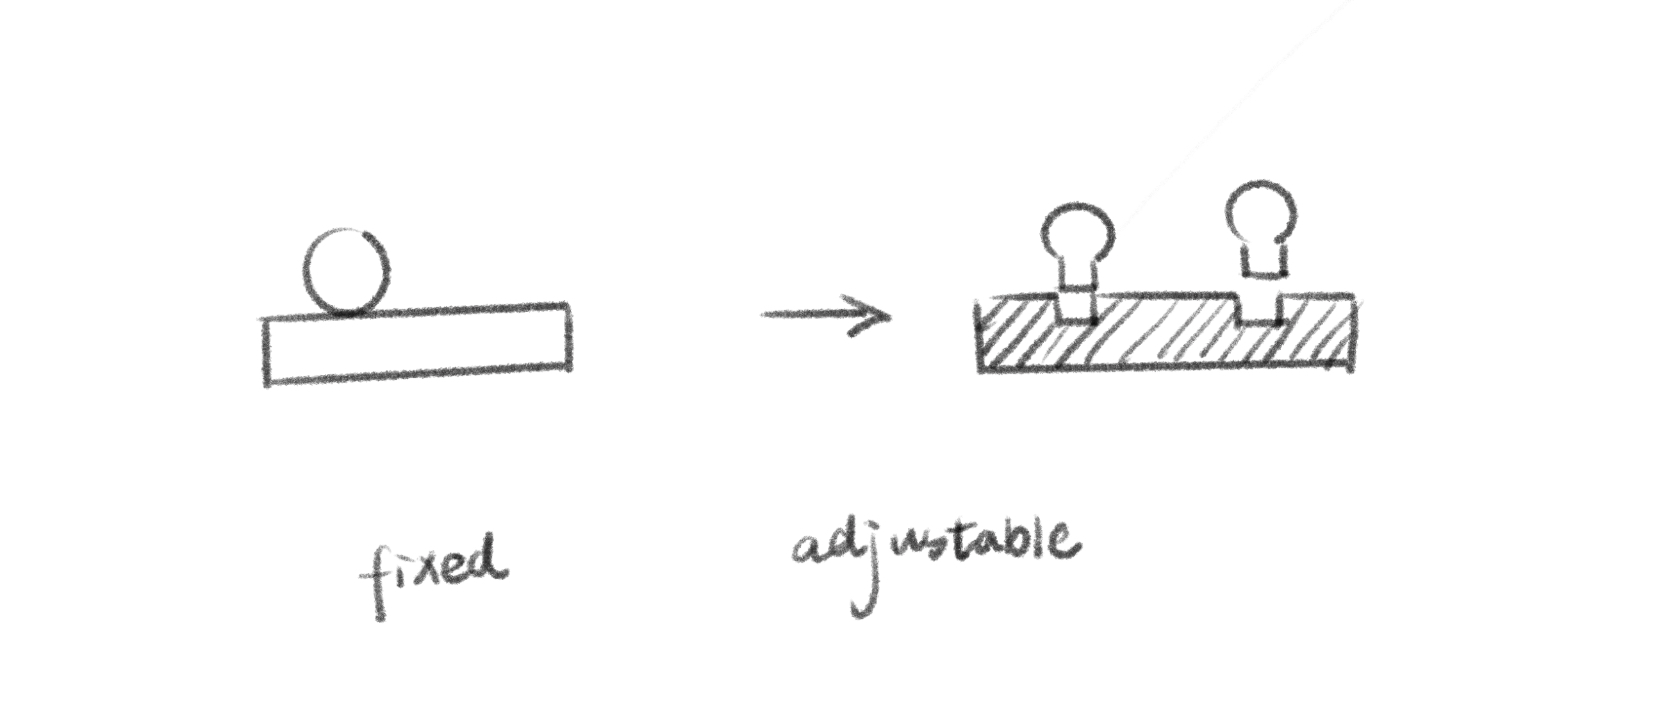 fixed
adjustable